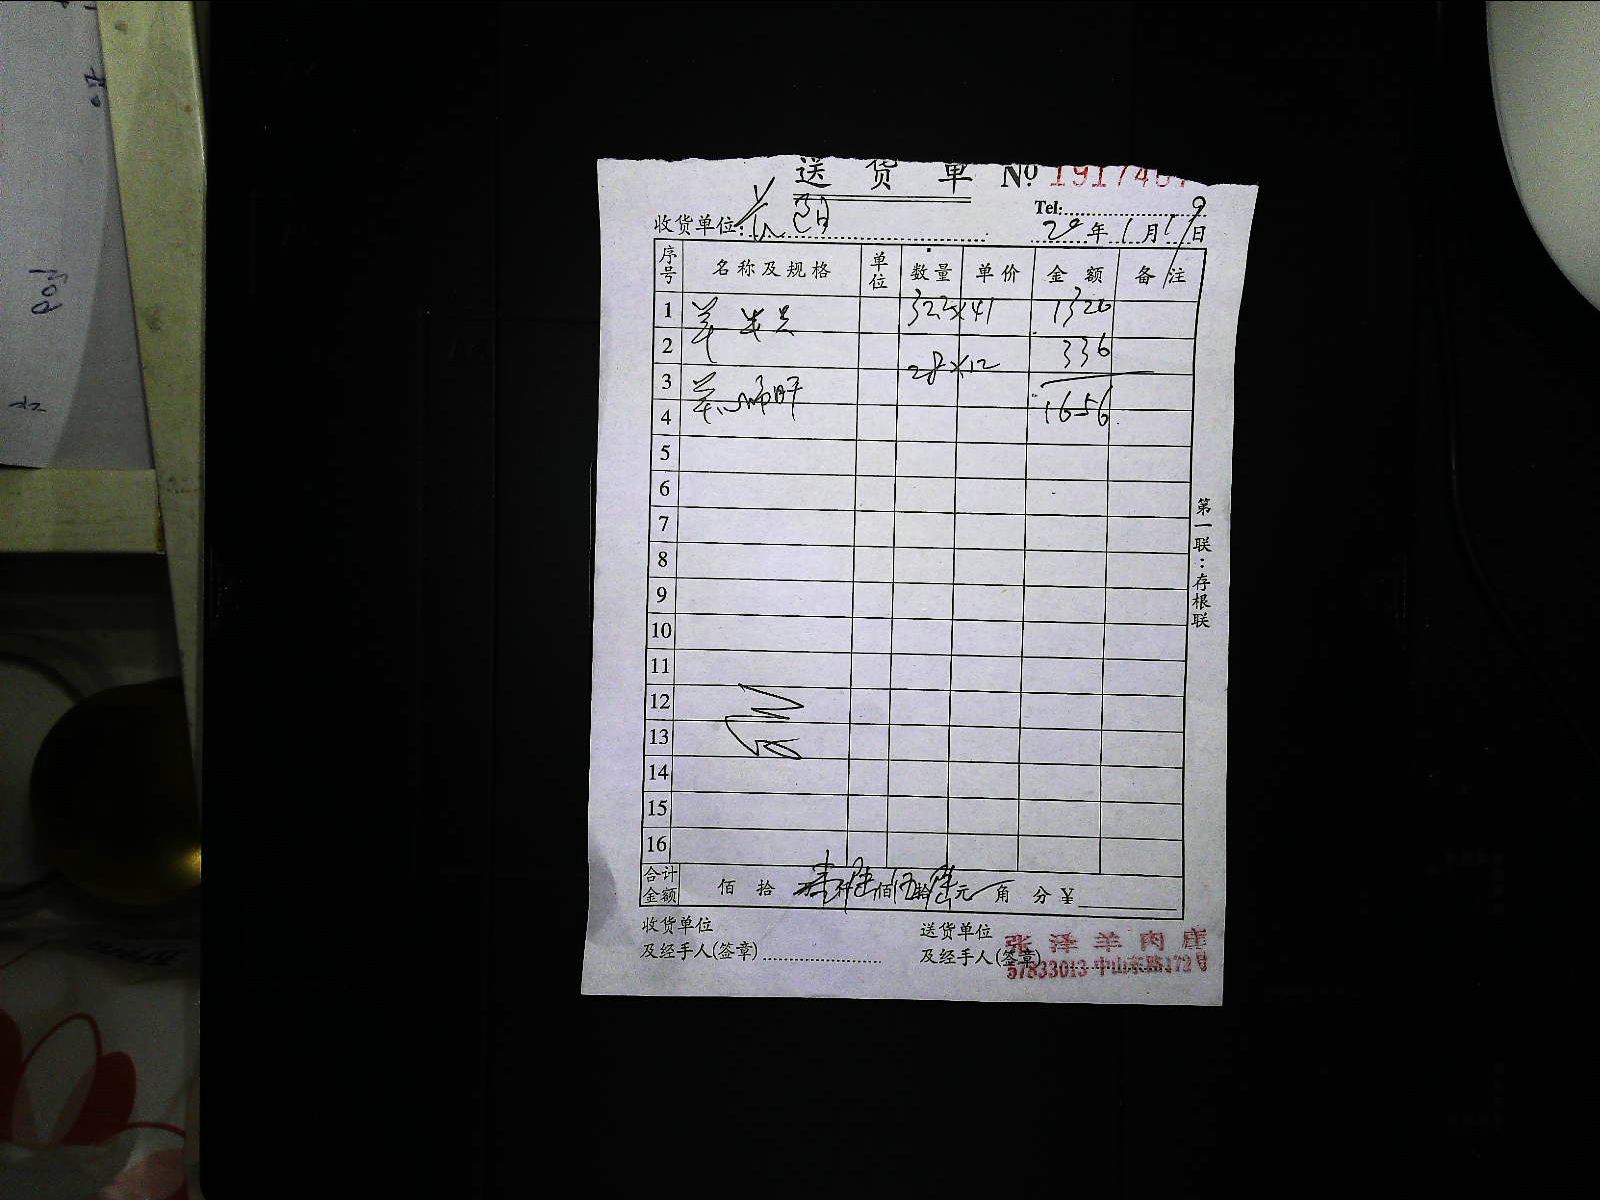 送 货 单 No 19174
Tel:
收货单位:
20年1月19日
序号 名称及规格 单位 数量 单价 金额 备注
1 322×41 1320
2 28×12 336
3 羊
4 1656
5
6
7
8
9
10
11
12
13
14
15
16
合计金额 佰 拾 壹仟陆佰伍拾陆元 角 分 ¥
收货单位 送货单位
及经手人(签章) 及经手人(签章)
张泽羊肉庄
57833013 中山东路172号
第一联:存根联